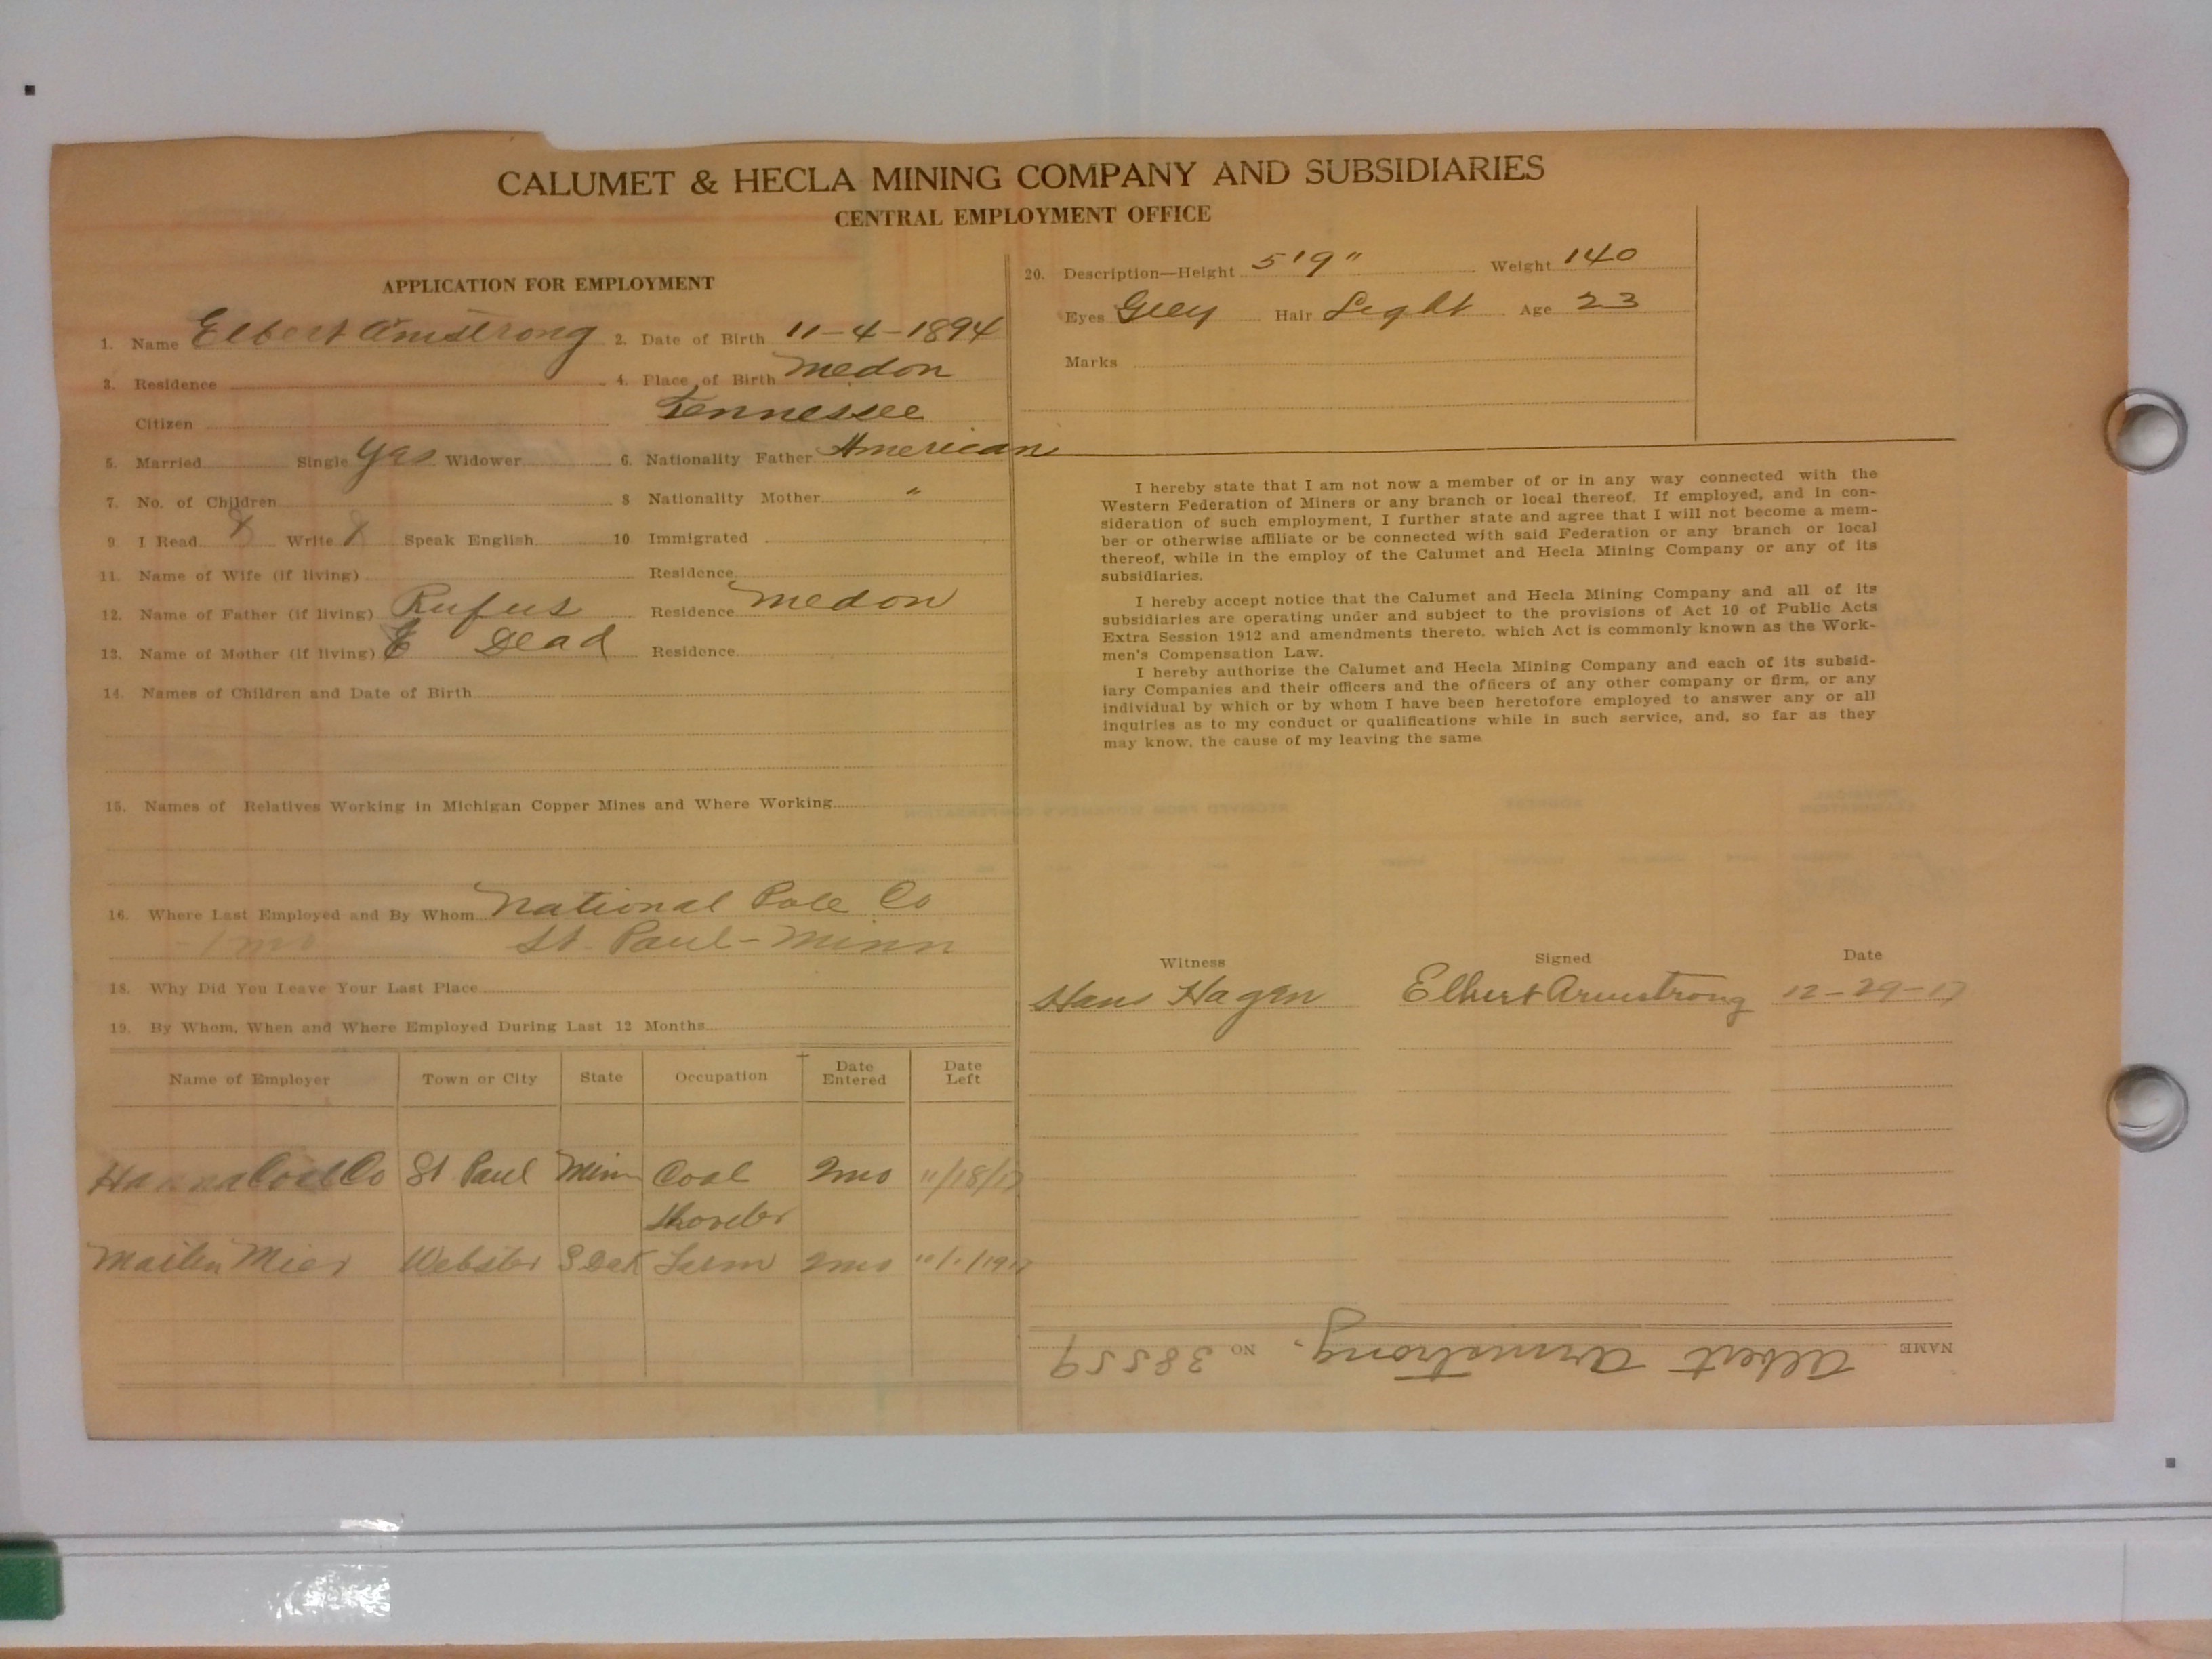 CALUMET & HECLA MINING COMPANY AND SUBSIDIARIES
CENTRAL EMPLOYMENT OFFICE
APPLICATION FOR EMPLOYMENT
1. Name Elbert Armstrong 2. Date of Birth 11-4-1894
3. Residence 4. Place of Birth Medon
Citizen Tennessee
5. Married Single Yas Widower 6. Nationality Father American
7. No. of Children 8 Nationality Mother "
9. I Read X Write X Speak English 10 Immigrated
11. Name of Wife (if living) Residence
12. Name of Father (if living) Rufus Residence Medon
13. Name of Mother (if living) E Dead Residence
14. Names of Children and Date of Birth
15. Names of Relatives Working in Michigan Copper Mines and Where Working
16. Where Last Employed and By Whom National Pole Co
1 mo St. Paul - Minn
18. Why Did You Leave Your Last Place
19. By Whom, When and Where Employed During Last 12 Months
Name of Employer Town or City State Occupation Date Entered Date Left
Hanna Coal Co St Paul Minn Coal 2mo 11/18/17
Shoveler
Mier Webster S Dak Farm 2mo 11/1/1917
20. Description—Height 5'9" Weight 140
Eyes Grey Hair Light Age 23
Marks
I hereby state that I am not now a member of or in any way connected with the
Western Federation of Miners or any branch or local thereof. If employed, and in con-
sideration of such employment, I further state and agree that I will not become a mem-
ber or otherwise affiliate or be connected with said Federation or any branch or local
thereof, while in the employ of the Calumet and Hecla Mining Company or any of its
subsidiaries.
I hereby accept notice that the Calumet and Hecla Mining Company and all of its
subsidiaries are operating under and subject to the provisions of Act 10 of Public Acts
Extra Session 1912 and amendments thereto, which Act is commonly known as the Work-
men's Compensation Law.
I hereby authorize the Calumet and Hecla Mining Company and each of its subsid-
iary Companies and their officers and the officers of any other company or firm, or any
individual by which or by whom I have been heretofore employed to answer any or all
inquiries as to my conduct or qualifications while in such service, and, so far as they
may know, the cause of my leaving the same
Witness Signed Date
Hans Hagen Elbert Armstrong 12-29-17
NAME Albert Armstrong. NO 38559